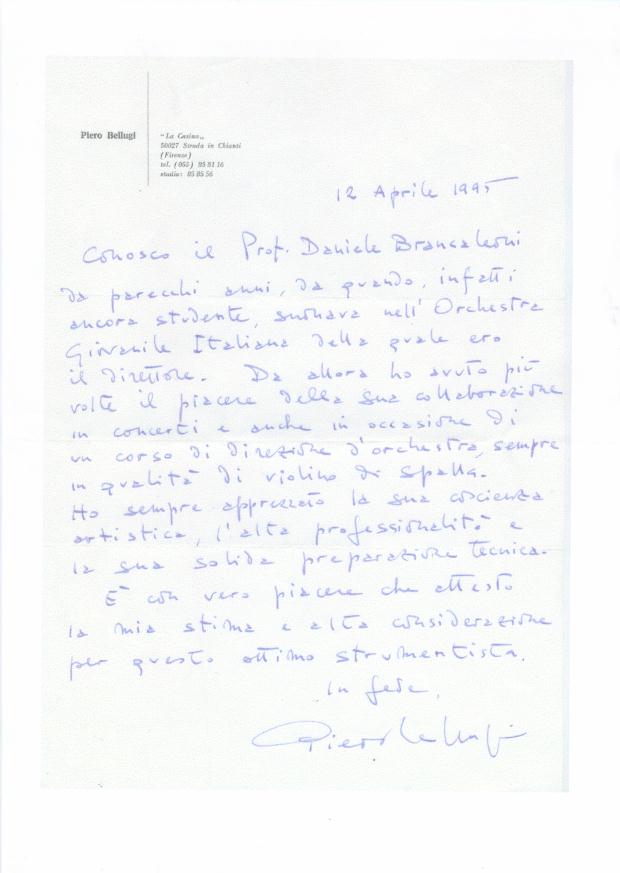 Piero Bellugi
"La Casina„
50027 Strada in Chianti
(Firenze)
tel. (055) 85 81 16
studio: 85 85 56
12 Aprile 1995
Conosco il Prof. Daniele Brancaleoni
da parecchi anni, da quando, infatti
ancora studente, suonava nell'Orchestra
Giovanile Italiana della quale ero
il direttore. Da allora ho avuto più
volte il piacere della sua collaborazione
in concerti e anche in occasione di
un corso di direzione d'orchestra, sempre
in qualità di violino di spalla.
Ho sempre apprezzato la sua coscienza
artistica, l'alta professionalità e
la sua solida preparazione tecnica.
È con vero piacere che attesto
la mia stima e alta considerazione
per questo ottimo strumentista.
In fede,
Piero Bellugi